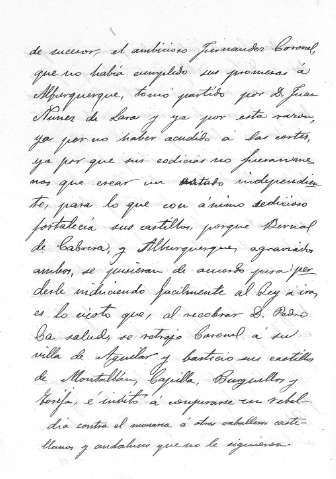 de sucesor, el ambicioso Fernandez Coronel,
que no había cumplido sus promesas á
Alburquerque, tomó partido por D. Juan
Nuñez de Lara y ya por esta razon,
ya por no haber acudido á las cortes,
ya por que sus codicias no fueran me
nos que crear un estado independien
te, para lo que con ánimo sedicioso
fortalecía sus castillos, porqué Bernal
de Cabrera, y Alburquerque, agraviados
ambos, se pusieran de acuerdo para per
derle induciendo facilmente al Rey á ira,
es lo cierto que, al recobrar D. Pedro
la salud, se retrajo Coronel á su
villa de Aguilar y basteció sus castillos
de Montalbán, Capilla, Burguillos y
Torija, é invitó á conjurarse en rebel-
día contra el monarca á otros caballeros caste-
llanos y andaluces que no le siguieron.